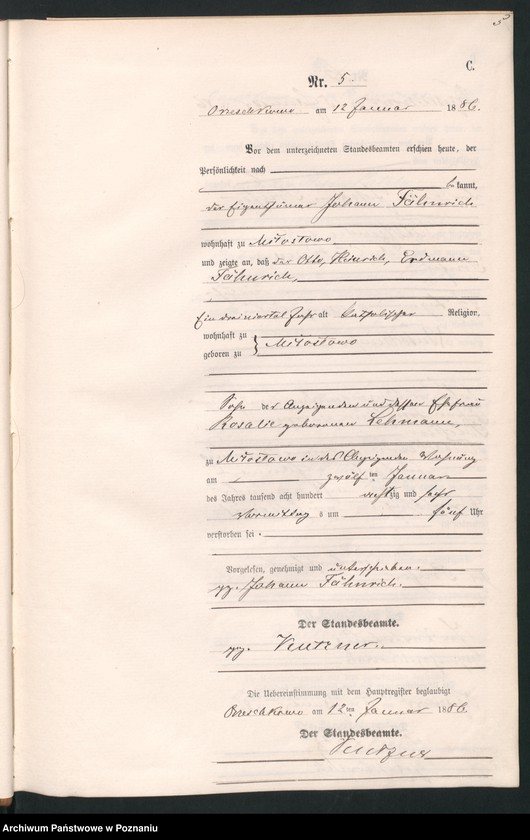 C.
Nr. 5.
Orzeschkowo am 12 Januar 1886.
Vor dem unterzeichneten Standesbeamten erschien heute, der
Persönlichkeit nach
be kannt,
der Eigenthümer Johann Fähnrich
wohnhaft zu Miłostowo
und zeigte an, daß der Otto, Heinrich, Erdmann
Fähnrich,
Ein dreiviertel Jahr alt katholischer Religion,
wohnhaft zu
geboren zu Miłostowo
Sohn des Anzeigenden und dessen Ehefrau
Rosalie geborenen Lehmann,
zu Miłostowo in des Anzeigenden Wohnung
am zwölf ten Januar
des Jahres tausend acht hundert achtzig und sechs
Vormittag s um fünf Uhr
verstorben sei.
Vorgelesen, genehmigt und unterschrieben.
gez. Johann Fähnrich.
Der Standesbeamte.
gez. Kutzner.
Die Uebereinstimmung mit dem Hauptregister beglaubigt
Orzeschkowo am 12 ten Januar 1886.
Der Standesbeamte.
Kutzner
Archiwum Państwowe w Poznaniu